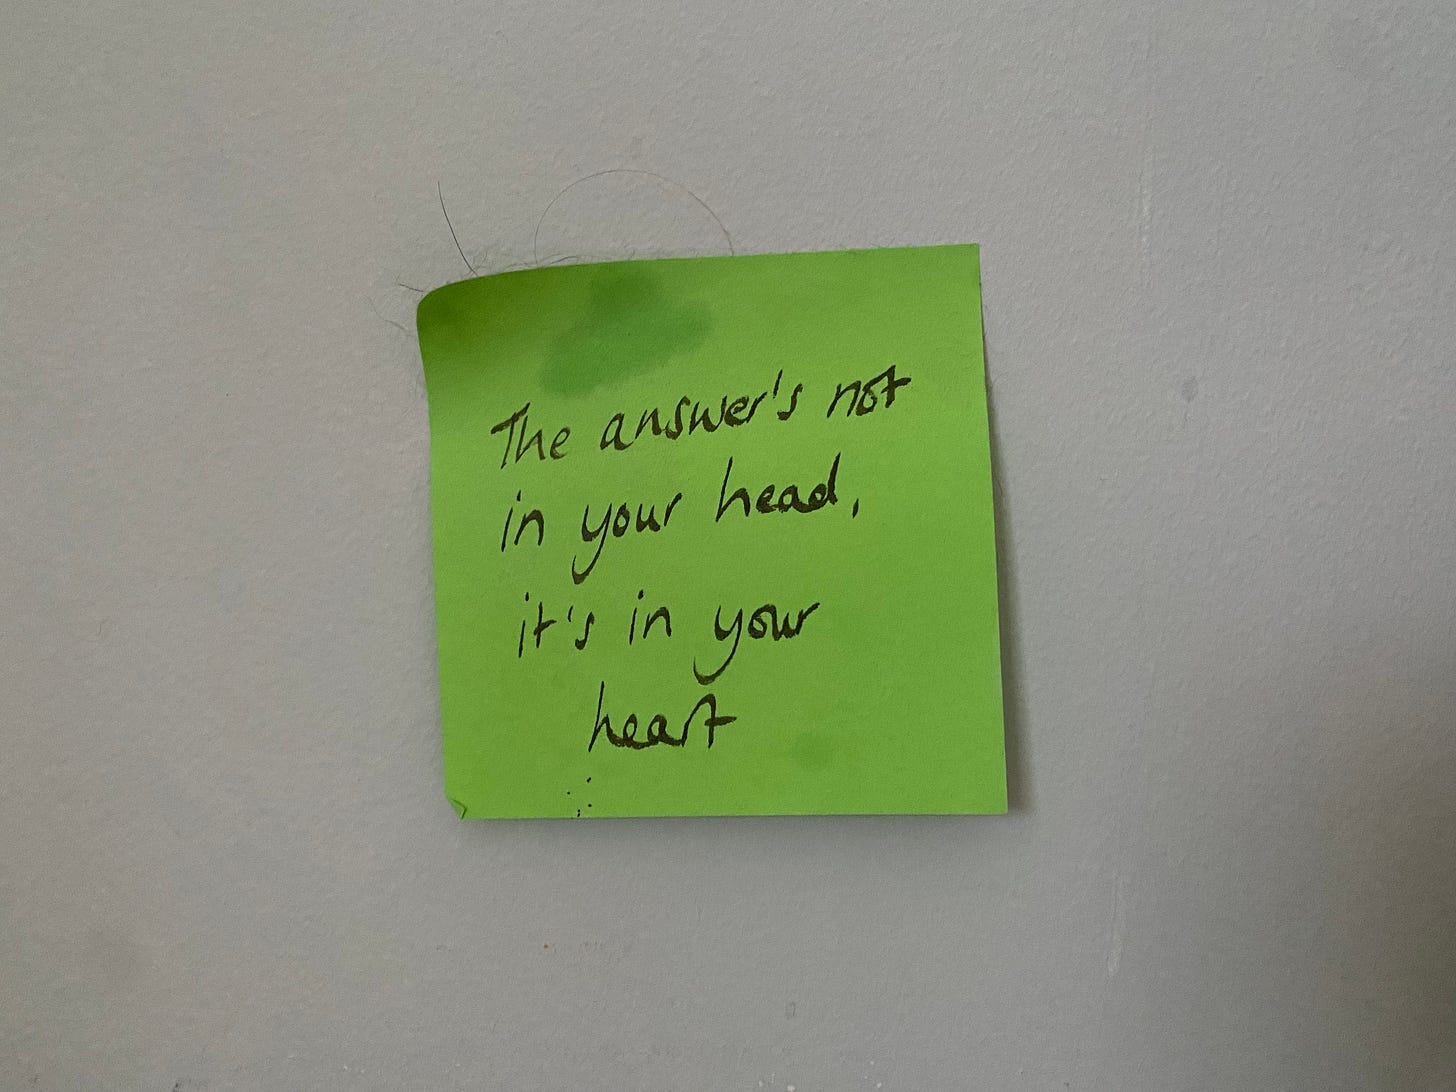 The answer's not
in your head,
it's in your
heart